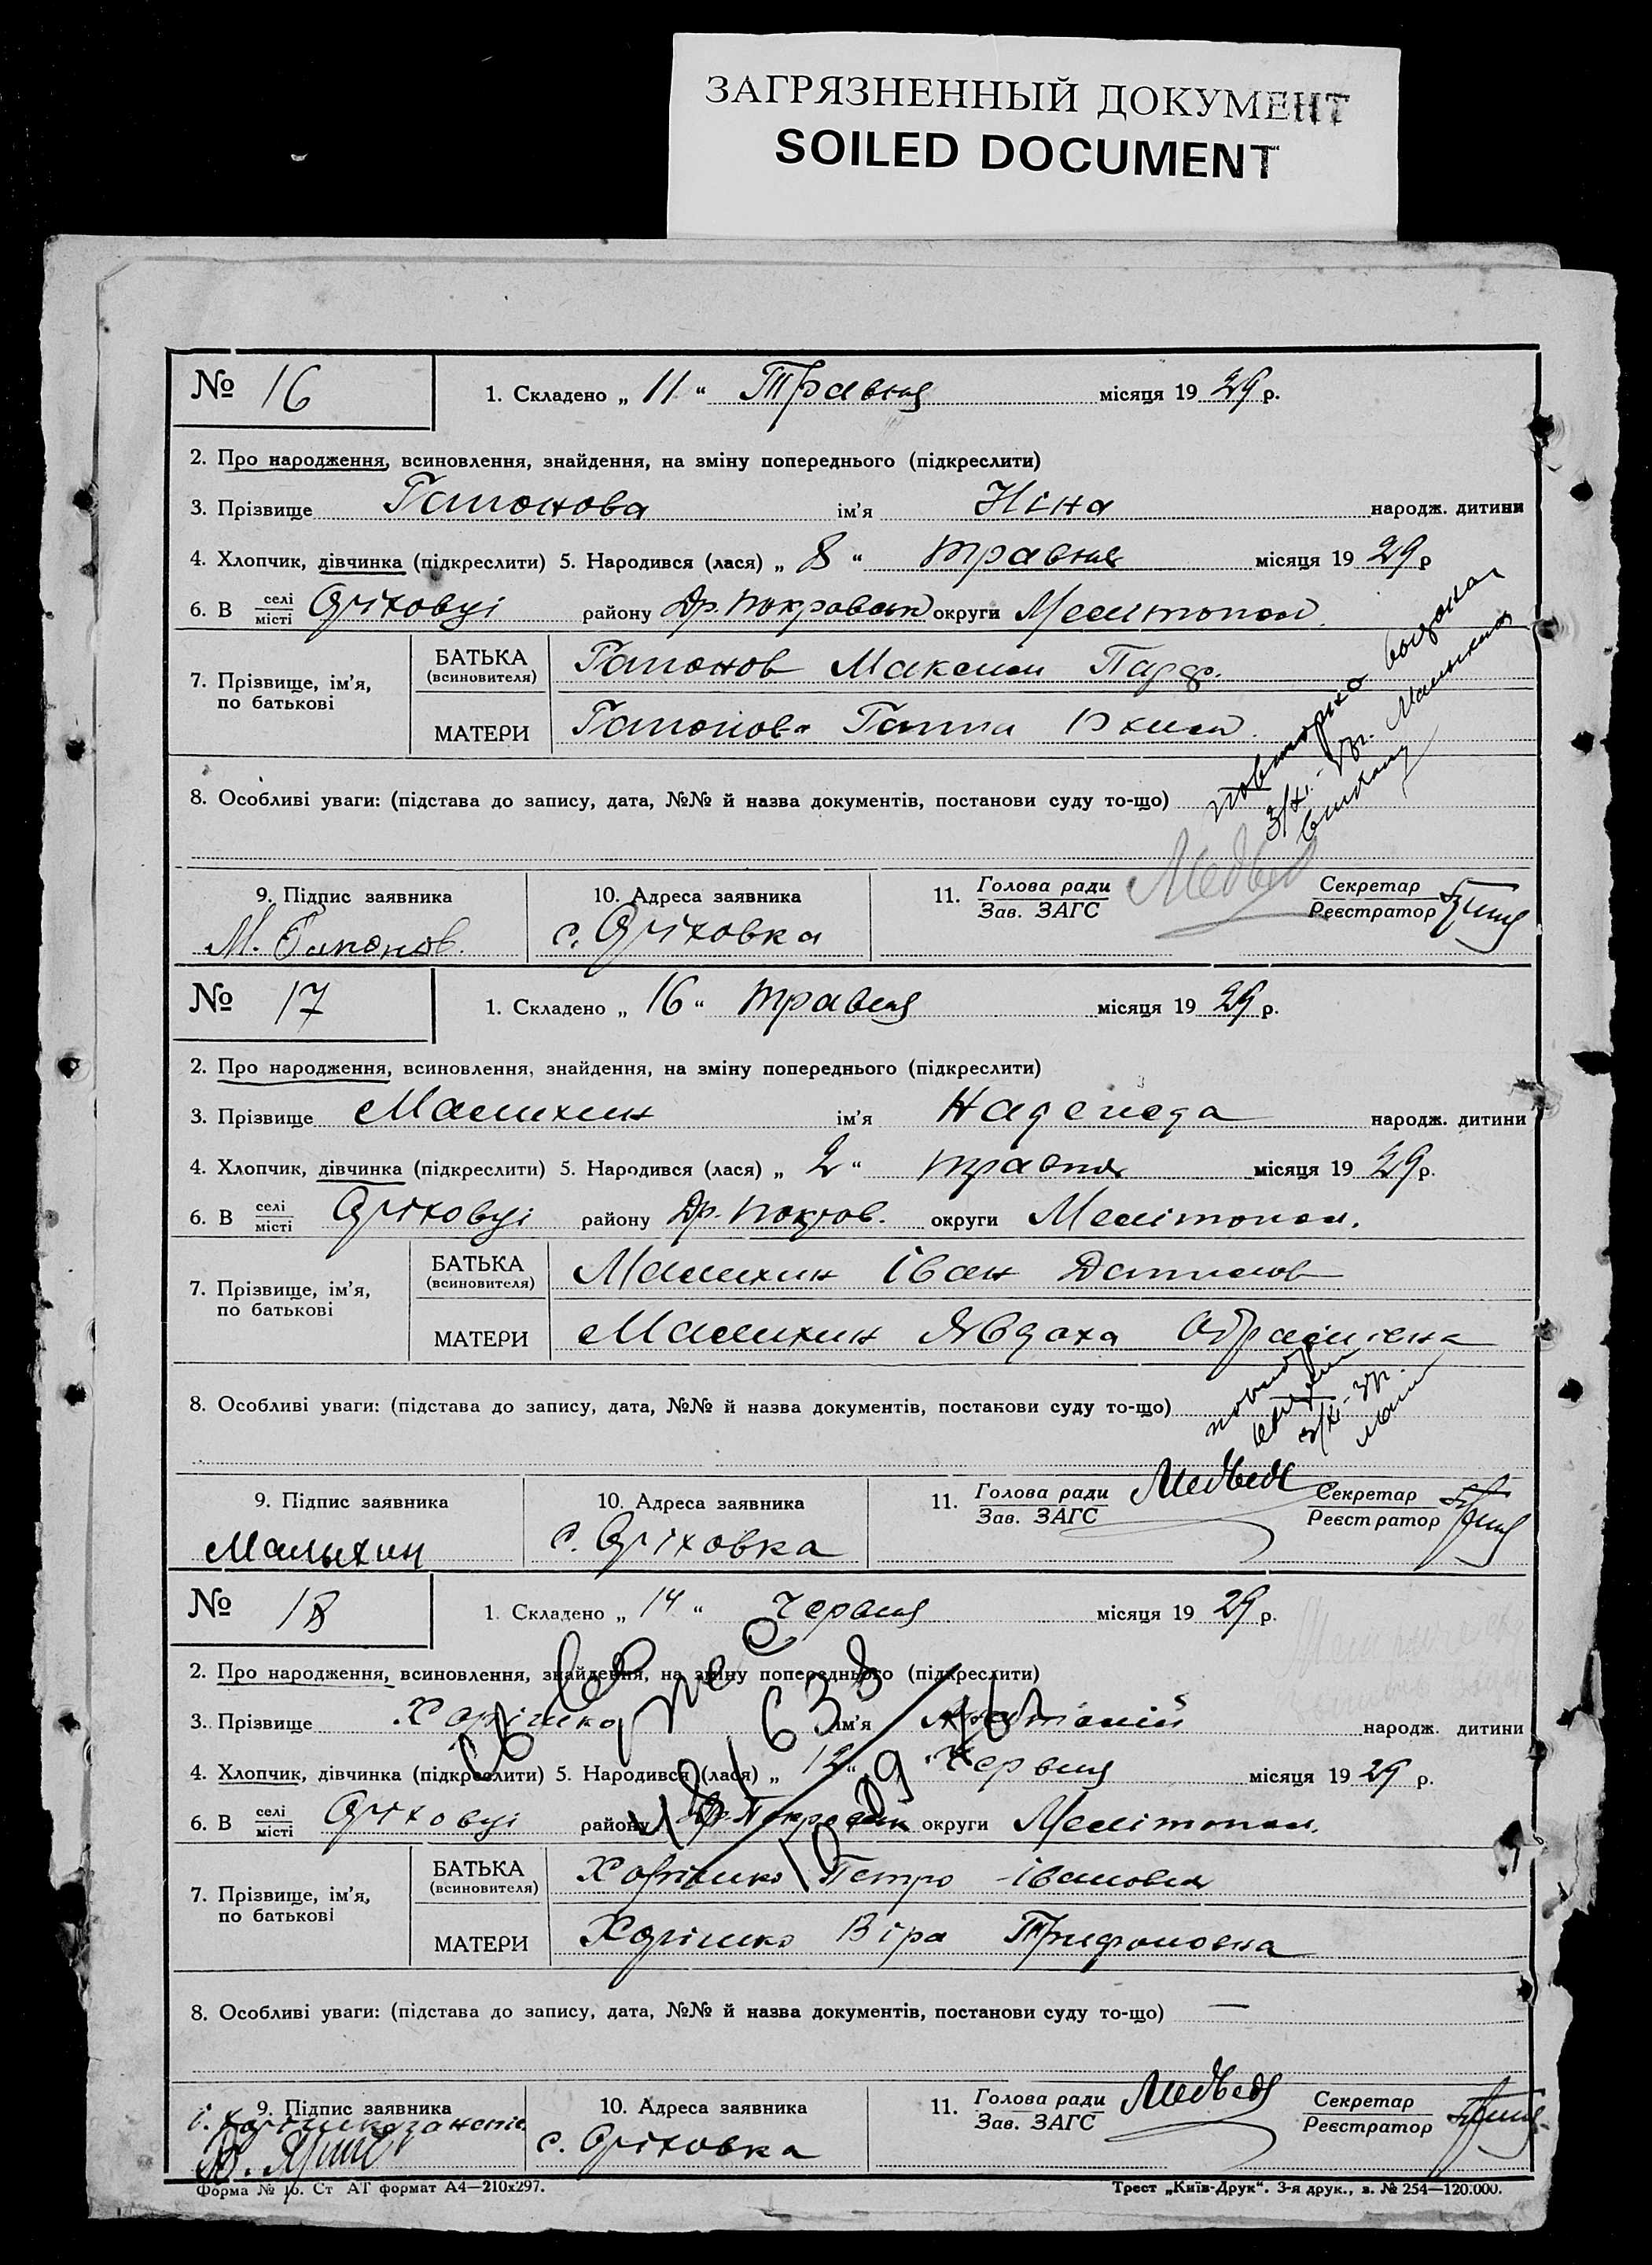 ЗАГРЯЗНЕННЫЙ ДОКУМЕНТ
SOILED DOCUMENT
№ 16
1. Складено „ 11 “ Травня місяця 19 29 р.
2. Про народження, всиновлення, знайдення, на зміну попереднього (підкреслити)
3. Прізвище Гапонова ім'я Ніна народж. дитини
4. Хлопчик, дівчинка (підкреслити) 5. Народився (лася) „ 8 “ травня місяця 19 29 р
6. В селі місті Оріховці району Др. Покровськ округи Мелітопол.
7. Прізвище, ім'я, по батькові
БАТЬКА (всиновителя) Гапонов Максим Парф.
МАТЕРИ Гапонова Ганна
8. Особливі уваги: (підстава до запису, дата, №№ й назва документів, постанови суду то-що)
повторно
9. Підпис заявника
М. Гапонов.
10. Адреса заявника
с. Оріховка
11. Голова ради Зав. ЗАГС Медведь Секретар Реєстратор
№ 17
1. Складено „ 16 “ травня місяця 19 29 р.
2. Про народження, всиновлення, знайдення, на зміну попереднього (підкреслити)
3. Прізвище Малихин ім'я Надежда народж. дитини
4. Хлопчик, дівчинка (підкреслити) 5. Народився (лася) „ 2 “ травня місяця 19 29 р.
6. В селі місті Оріховці району Др. Покров. округи Мелітопол.
7. Прізвище, ім'я, по батькові
БАТЬКА (всиновителя) Малихин Іван Данилов
МАТЕРИ Малихин Явдоха
8. Особливі уваги: (підстава до запису, дата, №№ й назва документів, постанови суду то-що)
9. Підпис заявника
Малыхин
10. Адреса заявника
с. Оріховка
11. Голова ради Зав. ЗАГС Медведь Секретар Реєстратор
№ 18
1. Складено „ 14 “ Червня місяця 19 29 р.
2. Про народження, всиновлення, знайдення, на зміну попереднього (підкреслити)
3. Прізвище Харішко ім'я Анатолій народж. дитини
4. Хлопчик, дівчинка (підкреслити) 5. Народився (лася) „ 12 “ Червня місяця 19 29 р.
6. В селі місті Оріховці району Др. Покровськ округи Мелітопол.
7. Прізвище, ім'я, по батькові
БАТЬКА (всиновителя) Харішко Петро Іванович
МАТЕРИ Харішко Віра Трифоновна
8. Особливі уваги: (підстава до запису, дата, №№ й назва документів, постанови суду то-що) —
9. Підпис заявника
10. Адреса заявника
с. Оріховка
11. Голова ради Зав. ЗАГС Медведь Секретар Реєстратор
Форма № 16. Ст АТ формат А4—210х297.
Трест „Київ-Друк“. 3-я друк., з. № 254—120.000.